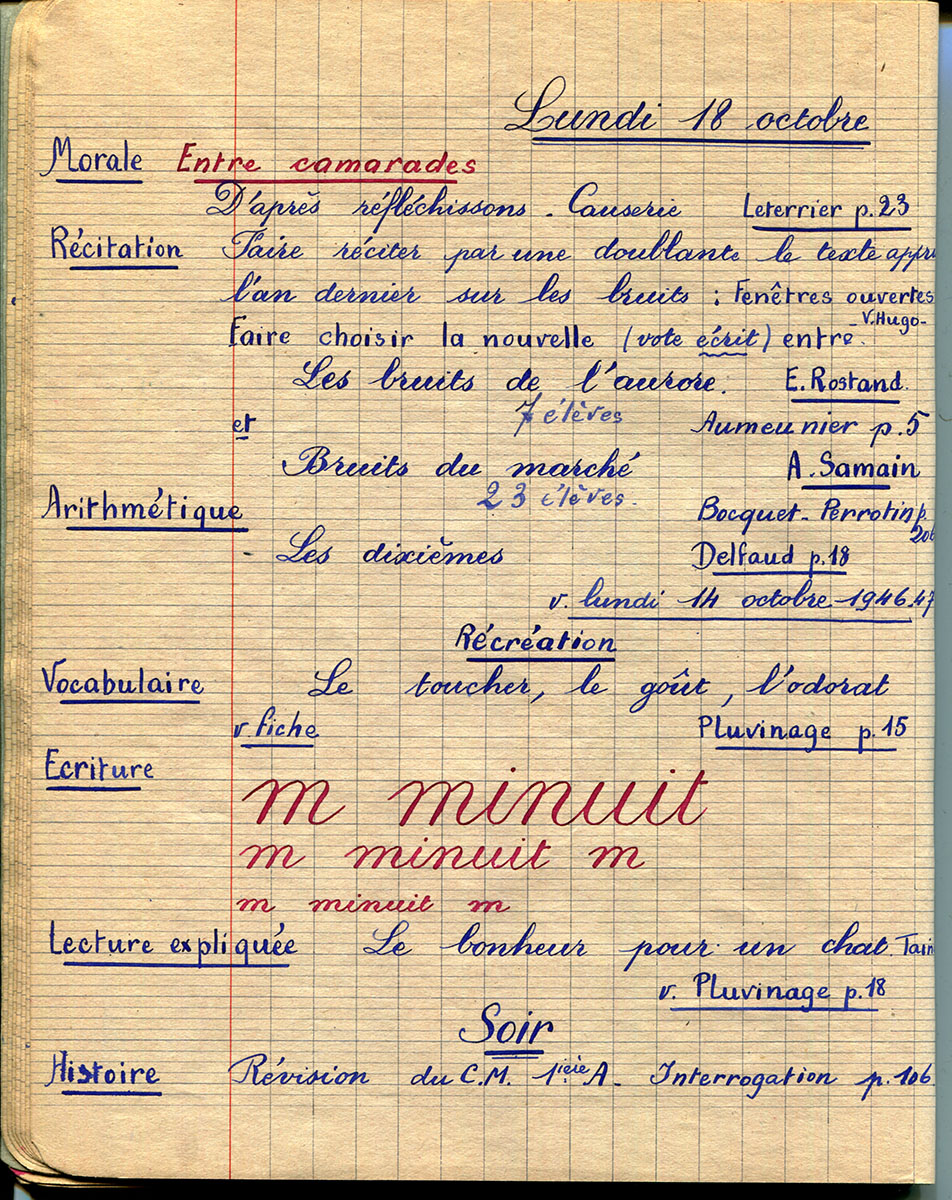 Lundi 18 octobre
Morale Entre camarades
D'après réfléchissons - Causerie Leterrier p. 23
Récitation Faire réciter par une doublante le texte appri
l'an dernier sur les bruits : Fenêtres ouvertes
- V. Hugo -
Faire choisir la nouvelle (vote écrit) entre
Les bruits de l'aurore. E. Rostand.
7 élèves
et Aumeunier p. 5
Bruits du marché A. Samain
23 élèves.
Arithmétique Bocquet - Perrotin p.
206
- Les dixièmes Delfaud p. 18
v. lundi 14 octobre - 1946.47
Récréation
Vocabulaire Le toucher, le goût, l'odorat
v. fiche Pluvinage p. 15
Ecriture
m minuit
m minuit m
m minuit m
Lecture expliquée Le bonheur pour un chat. Tain
v. Pluvinage p. 18
Soir
Histoire Révision du C.M. 1ière A - Interrogation p. 106